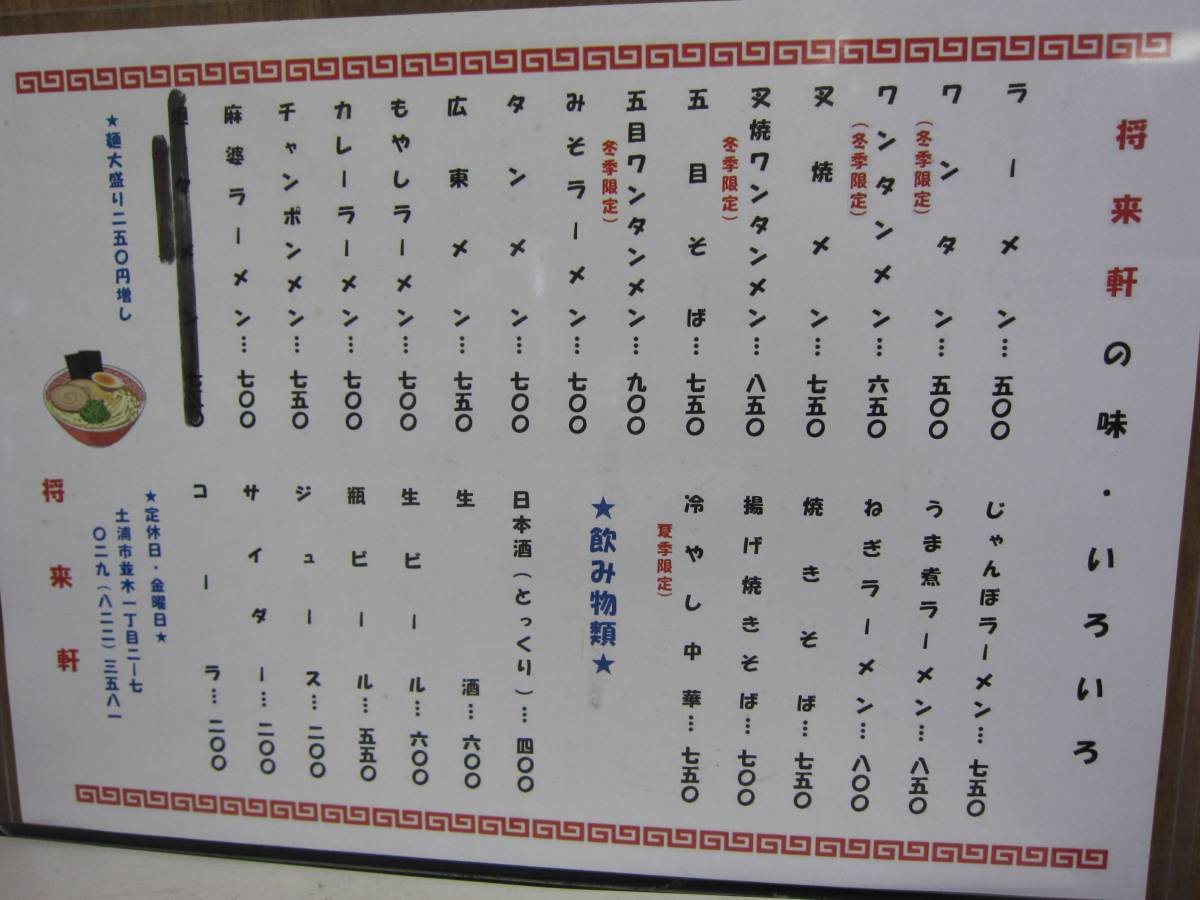 将来軒の味・いろいろ
ラーメン…五〇〇
ワンタン…五〇〇
（冬季限定）
ワンタンメン…六五〇
（冬季限定）
叉焼メン…七五〇
叉焼ワンタンメン…八五〇
冬季限定）
五目そば…七五〇
五目ワンタンメン…九〇〇
冬季限定）
みそラーメン…七〇〇
タンメン…七〇〇
広東メン…七五〇
もやしラーメン…七〇〇
カレーラーメン…七〇〇
チャンポンメン…七五〇
麻婆ラーメン…七〇〇
タメン
★麺大盛り二五〇円増し
じゃんぼラーメン…七五〇
うま煮ラーメン…八五〇
ねぎラーメン…八〇〇
焼きそば…七五〇
揚げ焼きそば…七〇〇
冷やし中華…七五〇
夏季限定）
★飲み物類★
日本酒（とっくり）…四〇〇
生酒…六〇〇
生ビール…六〇〇
瓶ビール…五五〇
ジュース…二〇〇
サイダー…二〇〇
コーラ…二〇〇
★定休日・金曜日★
土浦市並木一丁目二ー七
〇二九（八二二）三五八一
将来軒